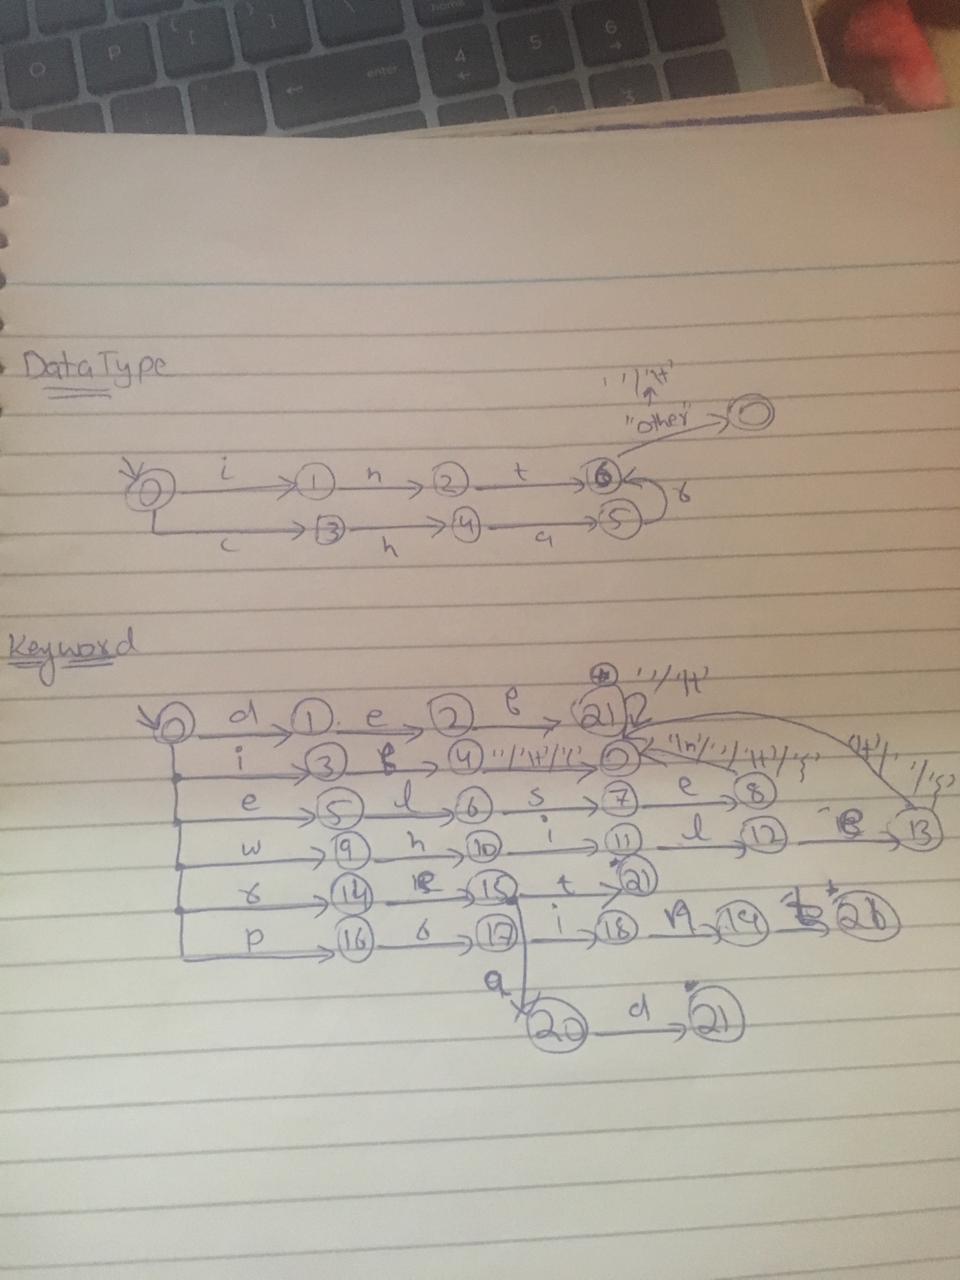 O P { [ } ] home
enter 4 5 6
DataType
' '/'\t'
"other"
0 i 1 n 2 t 6
c 3 h 4 a 5 r
Keyword
* ' '/'\t'
0 d 1 e 2 f 21
i 3 f 4 ' '/'\t'/'(' '\n'/' '/'\t'/'{' '\t'/' '/'{'
e 5 l 6 s 7 e 8
w 9 h 10 i 11 l 12 e 13
r 14 e 15 t 21 *
p 16 r 17 i 18 n 19 t 21 *
a 20 d 21 *